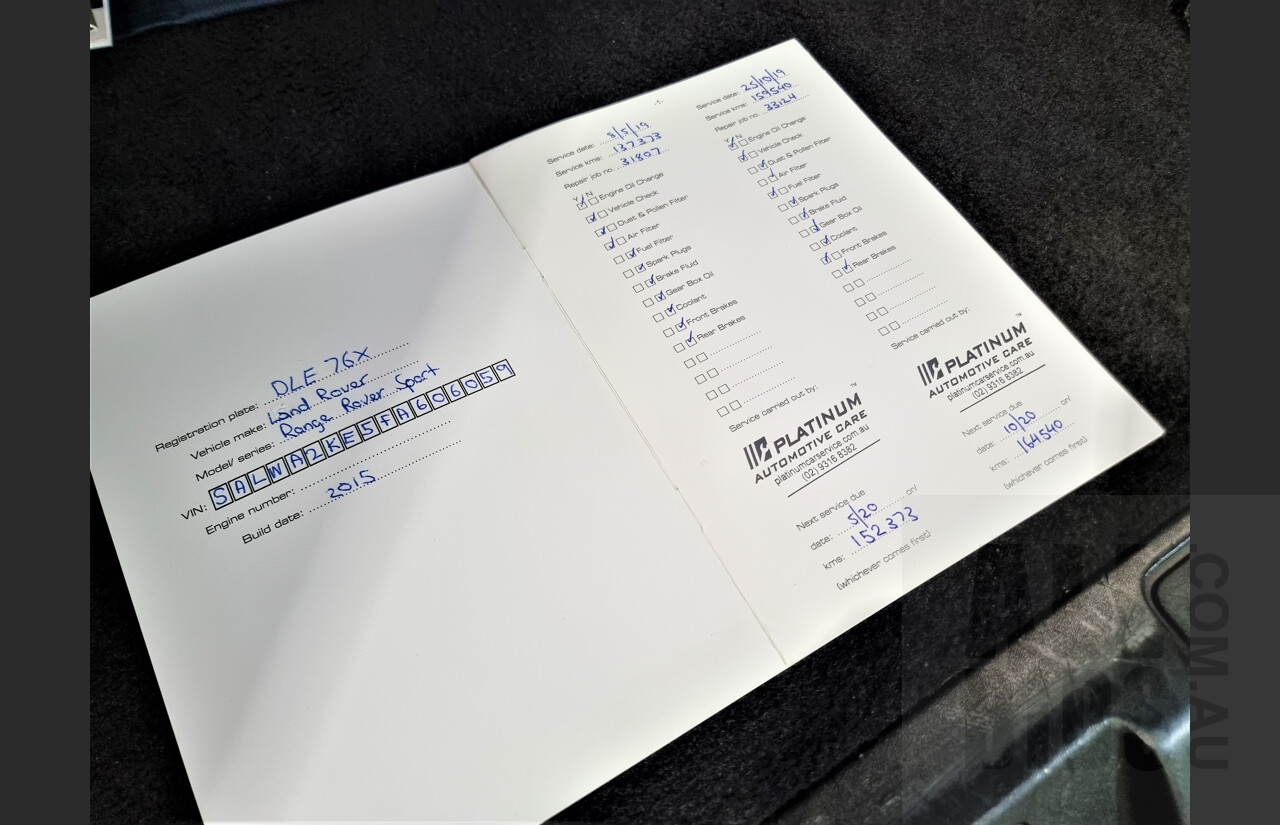 Registration plate: DLE 76X
Vehicle make: Land Rover
Model/ series: Range Rover Sport
VIN: SALWA2KE5FA606059
Engine number:
Build date: 2015
-1-
Service date: 8/5/19
Service kms: 137373
Repair job no. 31807
Y N
Engine Oil Change
Vehicle Check
Dust & Pollen Filter
Air Filter
Fuel Filter
Spark Plugs
Brake Fluid
Gear Box Oil
Coolant
Front Brakes
Rear Brakes
Service carried out by:
PLATINUM™
AUTOMOTIVE CARE
platinumcarservice.com.au
(02) 9316 8382
Next service due
date: 5/20 or/
kms: 152,373
(whichever comes first)
Service date: 25/10/19
Service kms: 159540
Repair job no. 33124
Y N
Engine Oil Change
Vehicle Check
Dust & Pollen Filter
Air Filter
Fuel Filter
Spark Plugs
Brake Fluid
Gear Box Oil
Coolant
Front Brakes
Rear Brakes
Service carried out by:
PLATINUM™
AUTOMOTIVE CARE
platinumcarservice.com.au
(02) 9316 8382
Next service due
date: 10/20 or/
kms: 164540
(whichever comes first)
.COM.AU